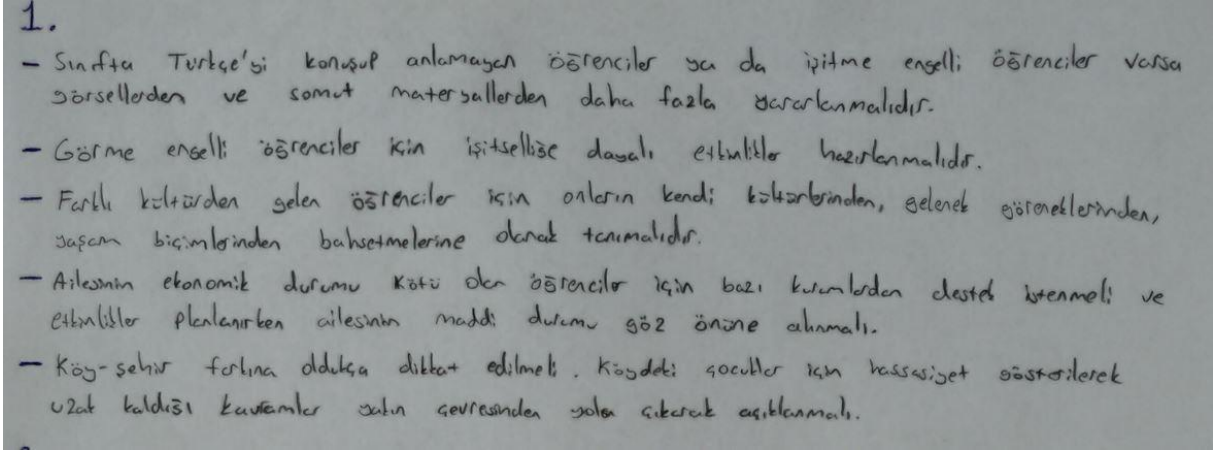 1.
- Sınıfta Türkçe'yi konuşup anlamayan öğrenciler ya da işitme engelli öğrenciler varsa
görsellerden ve somut materyallerden daha fazla yararlanmalıdır.
- Görme engelli öğrenciler için işitselliğe dayalı etkinlikler hazırlanmalıdır.
- Farklı kültürden gelen öğrenciler için onların kendi kültürlerinden, gelenek göreneklerinden,
yaşam biçimlerinden bahsetmelerine olanak tanımalıdır.
- Ailesinin ekonomik durumu kötü olan öğrenciler için bazı kurumlardan destek istenmeli ve
etkinlikler planlanırken ailesinin maddi durumu göz önüne alınmalı.
- Köy-şehir farkına oldukça dikkat edilmeli. Köydeki çocuklar için hassasiyet gösterilerek
uzak kaldığı kavramlar yakın çevresinden yola çıkarak açıklanmalı.